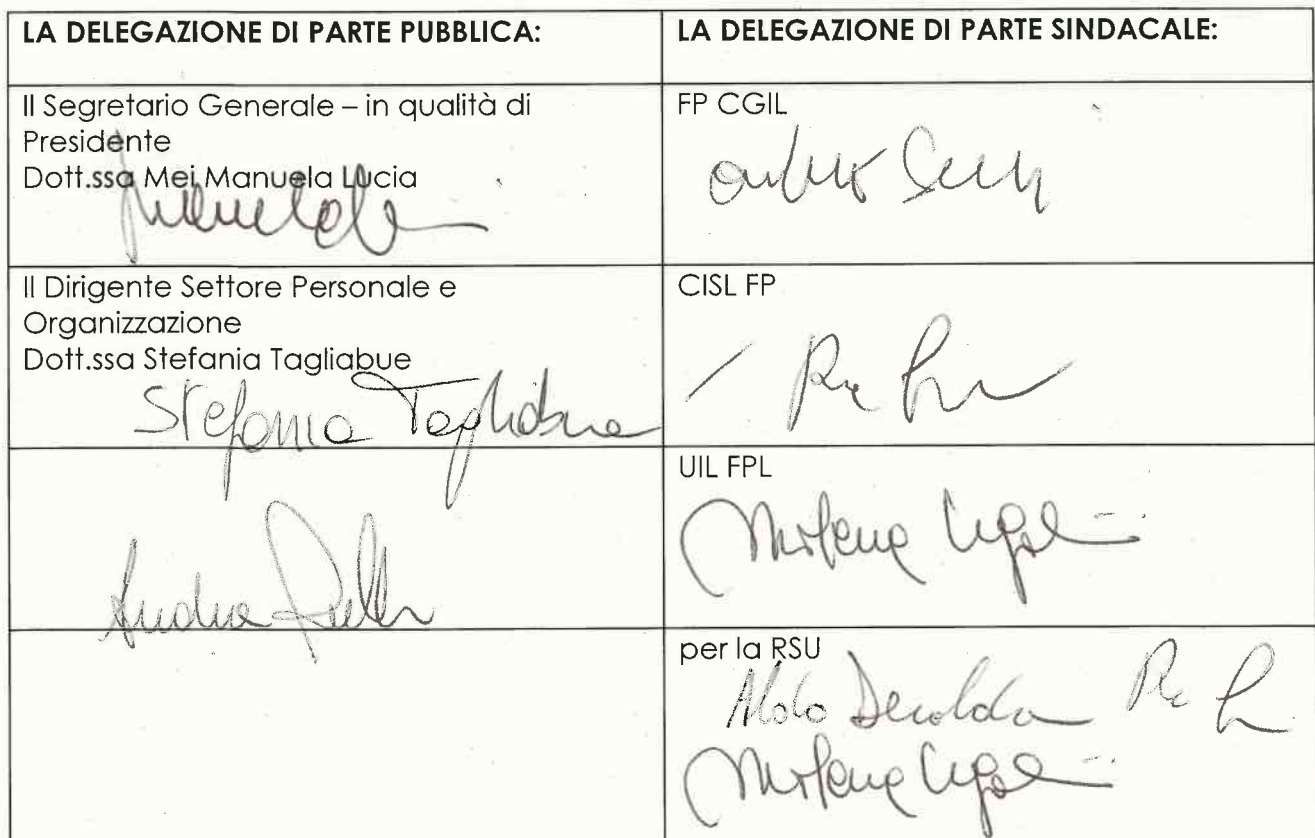 LA DELEGAZIONE DI PARTE PUBBLICA:
LA DELEGAZIONE DI PARTE SINDACALE:
Il Segretario Generale – in qualità di
Presidente
Dott.ssa Mei Manuela Lucia
FP CGIL
Il Dirigente Settore Personale e
Organizzazione
Dott.ssa Stefania Tagliabue
Stefania Tagliabue
CISL FP
UIL FPL
Milena
Andrea
per la RSU
Aldo
Milena